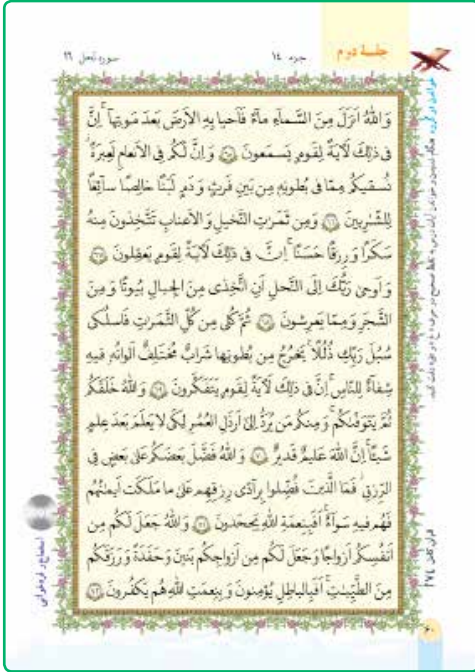 جلسهٔ دوم
جزء ١٤
سوره نحل ١٦
وَاللهُ اَنزَلَ مِنَ السَّماءِ ماءً فَاَحیا بِهِ الاَرضَ بَعدَ مَوتِها اِنَّ
فی ذٰلِكَ لَآیَةً لِقَومٍ یَسمَعونَ ﴿٦٥﴾ وَاِنَّ لَكُم فِی الاَنعامِ لَعِبرَةً
نُسقیكُم مِمّا فی بُطونِهٖ مِن بَینِ فَرثٍ وَ دَمٍ لَبَنًا خالِصًا سآئِغًا
لِلشّٰرِبینَ ﴿٦٦﴾ وَمِن ثَمَرٰتِ النَّخیلِ وَالاَعنابِ تَتَّخِذونَ مِنهُ
سَكَرًا وَرِزقًا حَسَنًا اِنَّ فی ذٰلِكَ لَآیَةً لِقَومٍ یَعقِلونَ ﴿٦٧﴾
وَ اَوحیٰ رَبُّكَ اِلَی النَّحلِ اَنِ اتَّخِذی مِنَ الجِبالِ بُیوتًا وَ مِنَ
الشَّجَرِ وَمِمّا یَعرِشونَ ﴿٦٨﴾ ثُمَّ كُلی مِن كُلِّ الثَّمَرٰتِ فَاسلُكی
سُبُلَ رَبِّكِ ذُلُلًا یَخرُجُ مِن بُطونِها شَرابٌ مُختَلِفٌ اَلوانُهٗ فیهِ
شِفآءٌ لِلنّاسِ اِنَّ فی ذٰلِكَ لَآیَةً لِقَومٍ یَتَفَكَّرونَ ﴿٦٩﴾ وَاللهُ خَلَقَكُم
ثُمَّ یَتَوَفّٰكُم وَمِنكُم مَن یُرَدُّ اِلیٰ اَرذَلِ العُمُرِ لِكَی لا یَعلَمَ بَعدَ عِلمٍ
شَیئًا اِنَّ اللهَ عَلیمٌ قَدیرٌ ﴿٧٠﴾ وَ اللهُ فَضَّلَ بَعضَكُم عَلیٰ بَعضٍ فِی
الرِّزقِ فَمَا الَّذینَ فُضِّلوا بِرآدّی رِزقِهِم عَلیٰ ما مَلَكَت اَیمٰنُهُم
فَهُم فیهِ سَوآءٌ اَفَبِنِعمَةِ اللهِ یَجحَدونَ ﴿٧١﴾ وَاللهُ جَعَلَ لَكُم مِن
اَنفُسِكُم اَزواجًا وَجَعَلَ لَكُم مِن اَزواجِكُم بَنینَ وَحَفَدَةً وَ رَزَقَكُم
مِنَ الطَّیِّبٰتِ اَفَبِالباطِلِ یُؤمِنونَ وَ بِنِعمَتِ اللهِ هُم یَكفُرونَ ﴿٧٢﴾
قرآن كامل ٢٧٤
٦٠